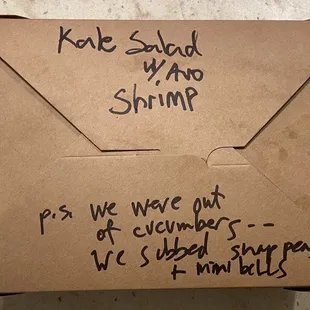 Kale Salad
w/ Avo
Shrimp
p.s. we were out
of cucumbers --
we subbed snap peas
+ mini bells